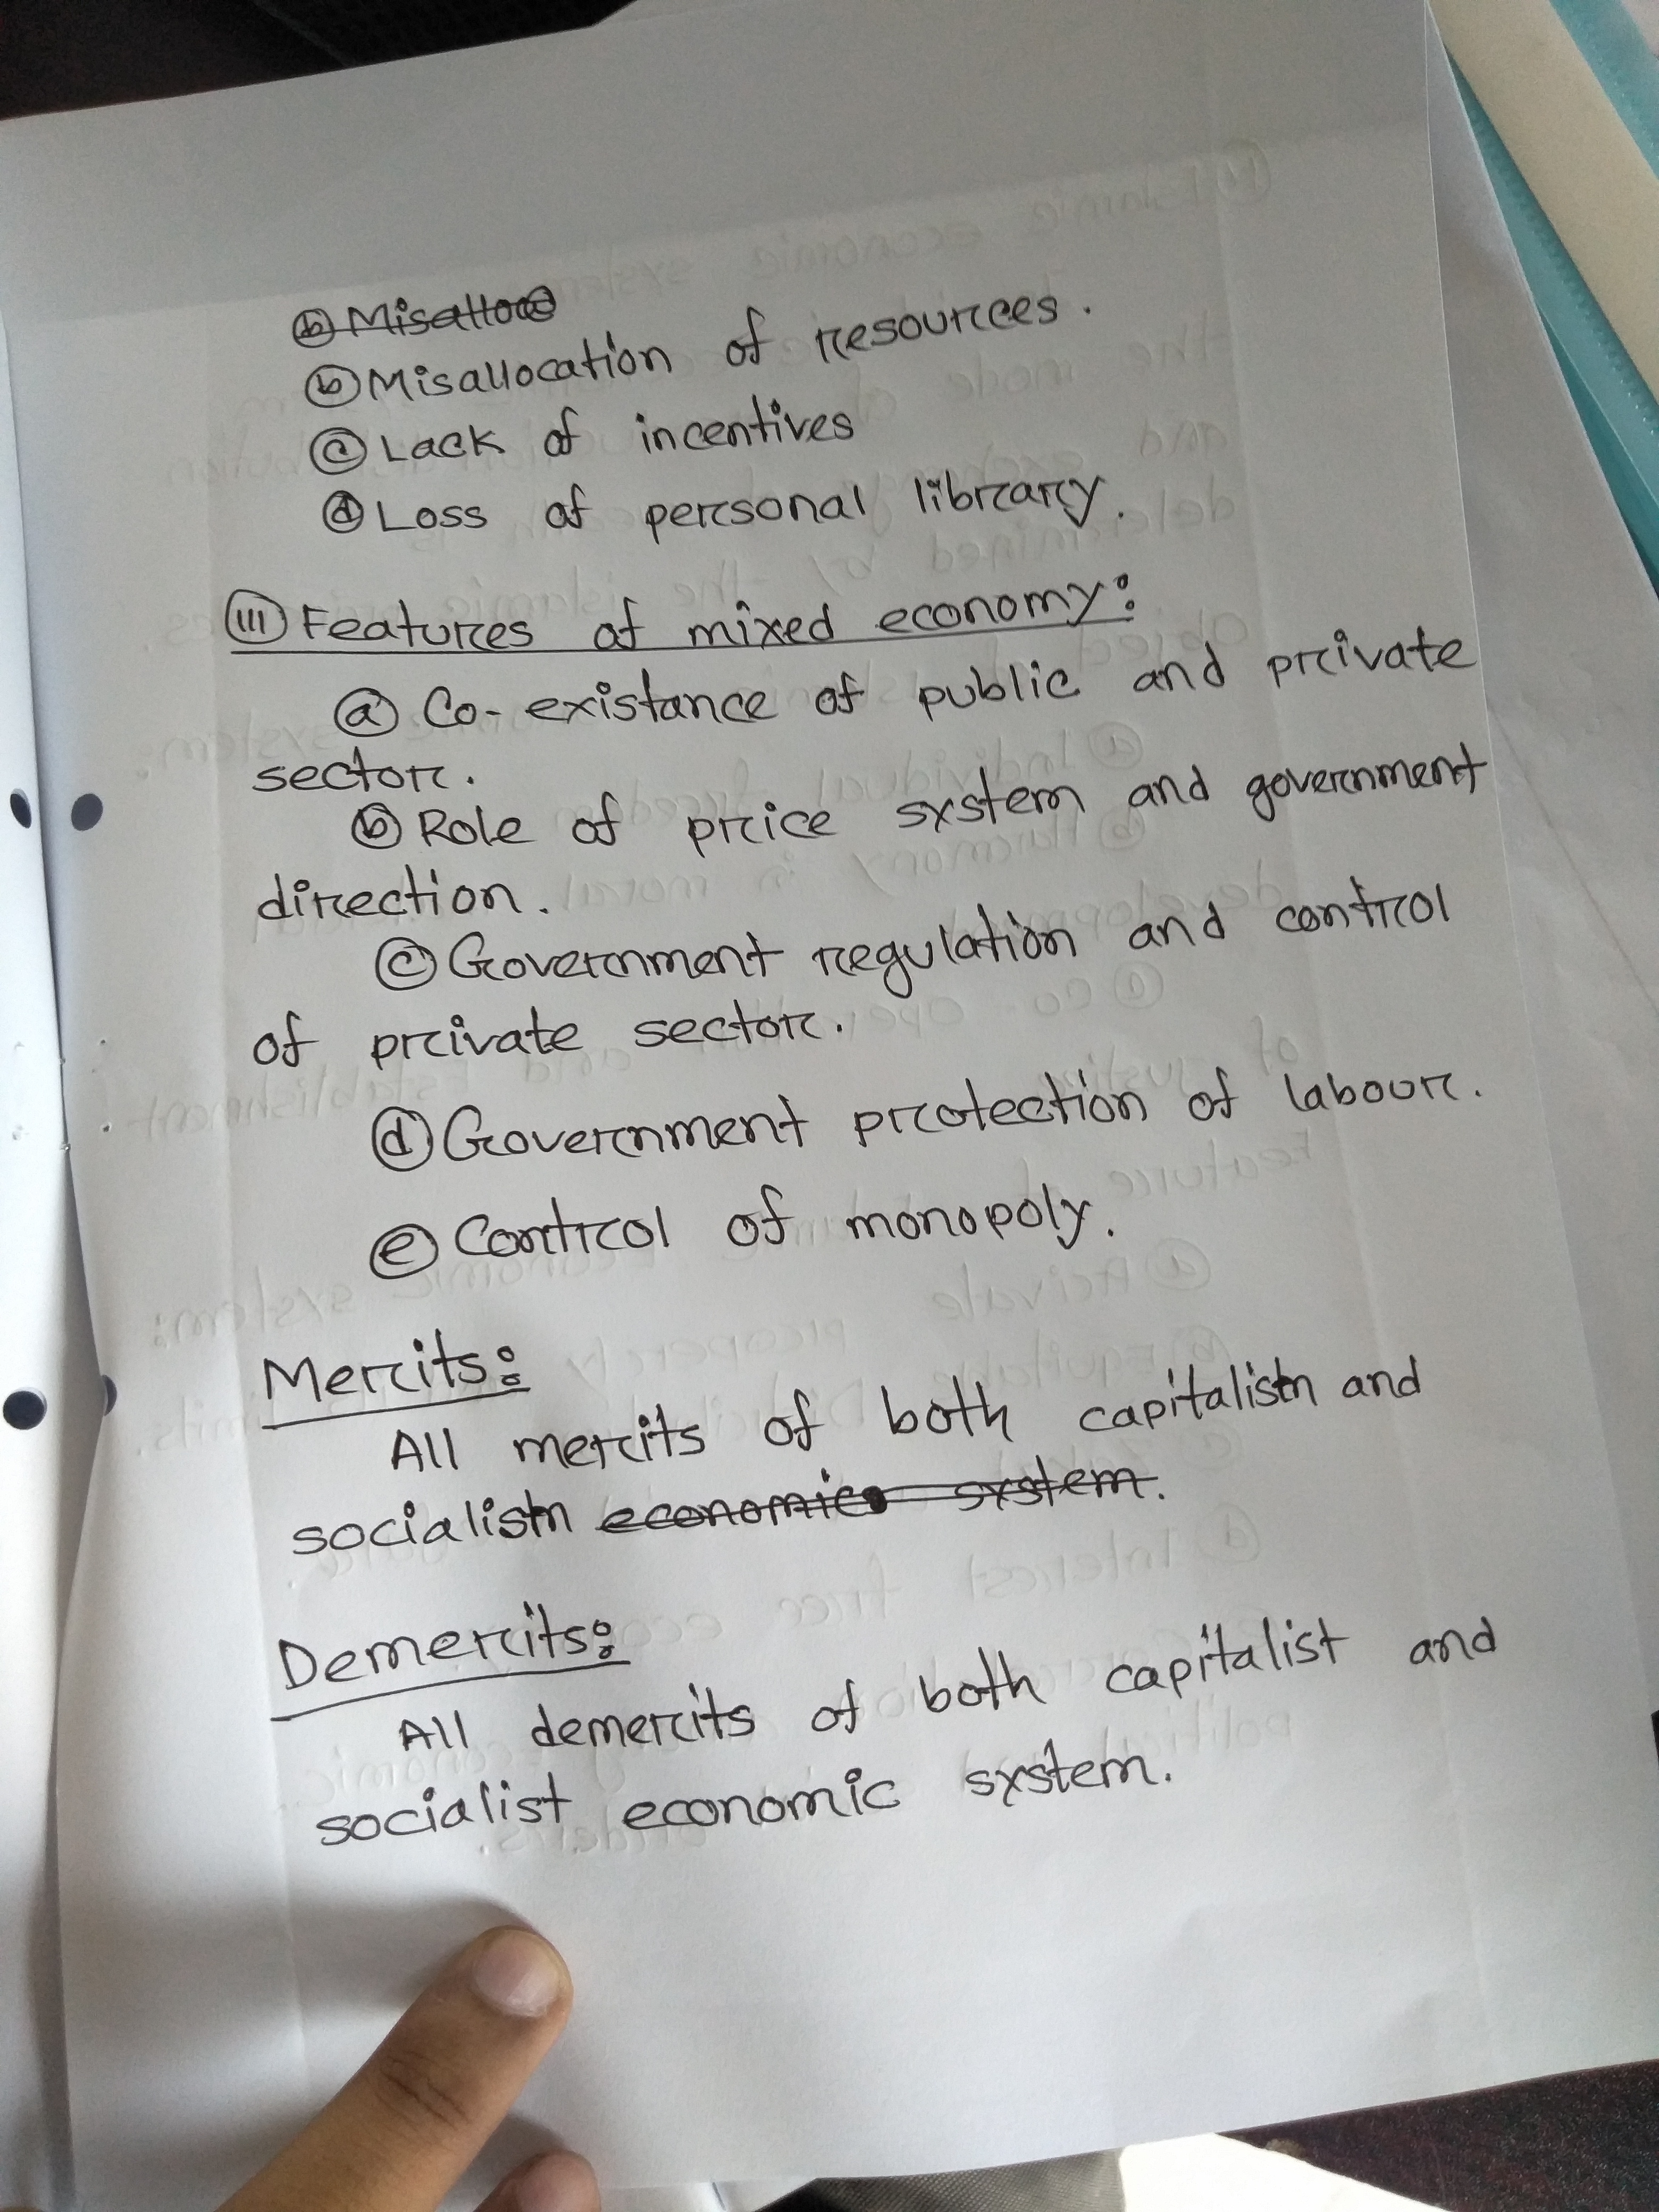 ⓑ Misalloc
ⓑ Misallocation of resources.
ⓒ Lack of incentives
ⓓ Loss of personal library.
(III) Features of mixed economy:
ⓐ Co-existance of public and private
sector.
ⓑ Role of price system and government
direction.
ⓒ Government regulation and control
of private sector.
ⓓ Government protection of labour.
ⓔ Control of monopoly.
Merits:
All merits of both capitalism and
socialism economic system.
Demerits:
All demerits of both capitalist and
socialist economic system.